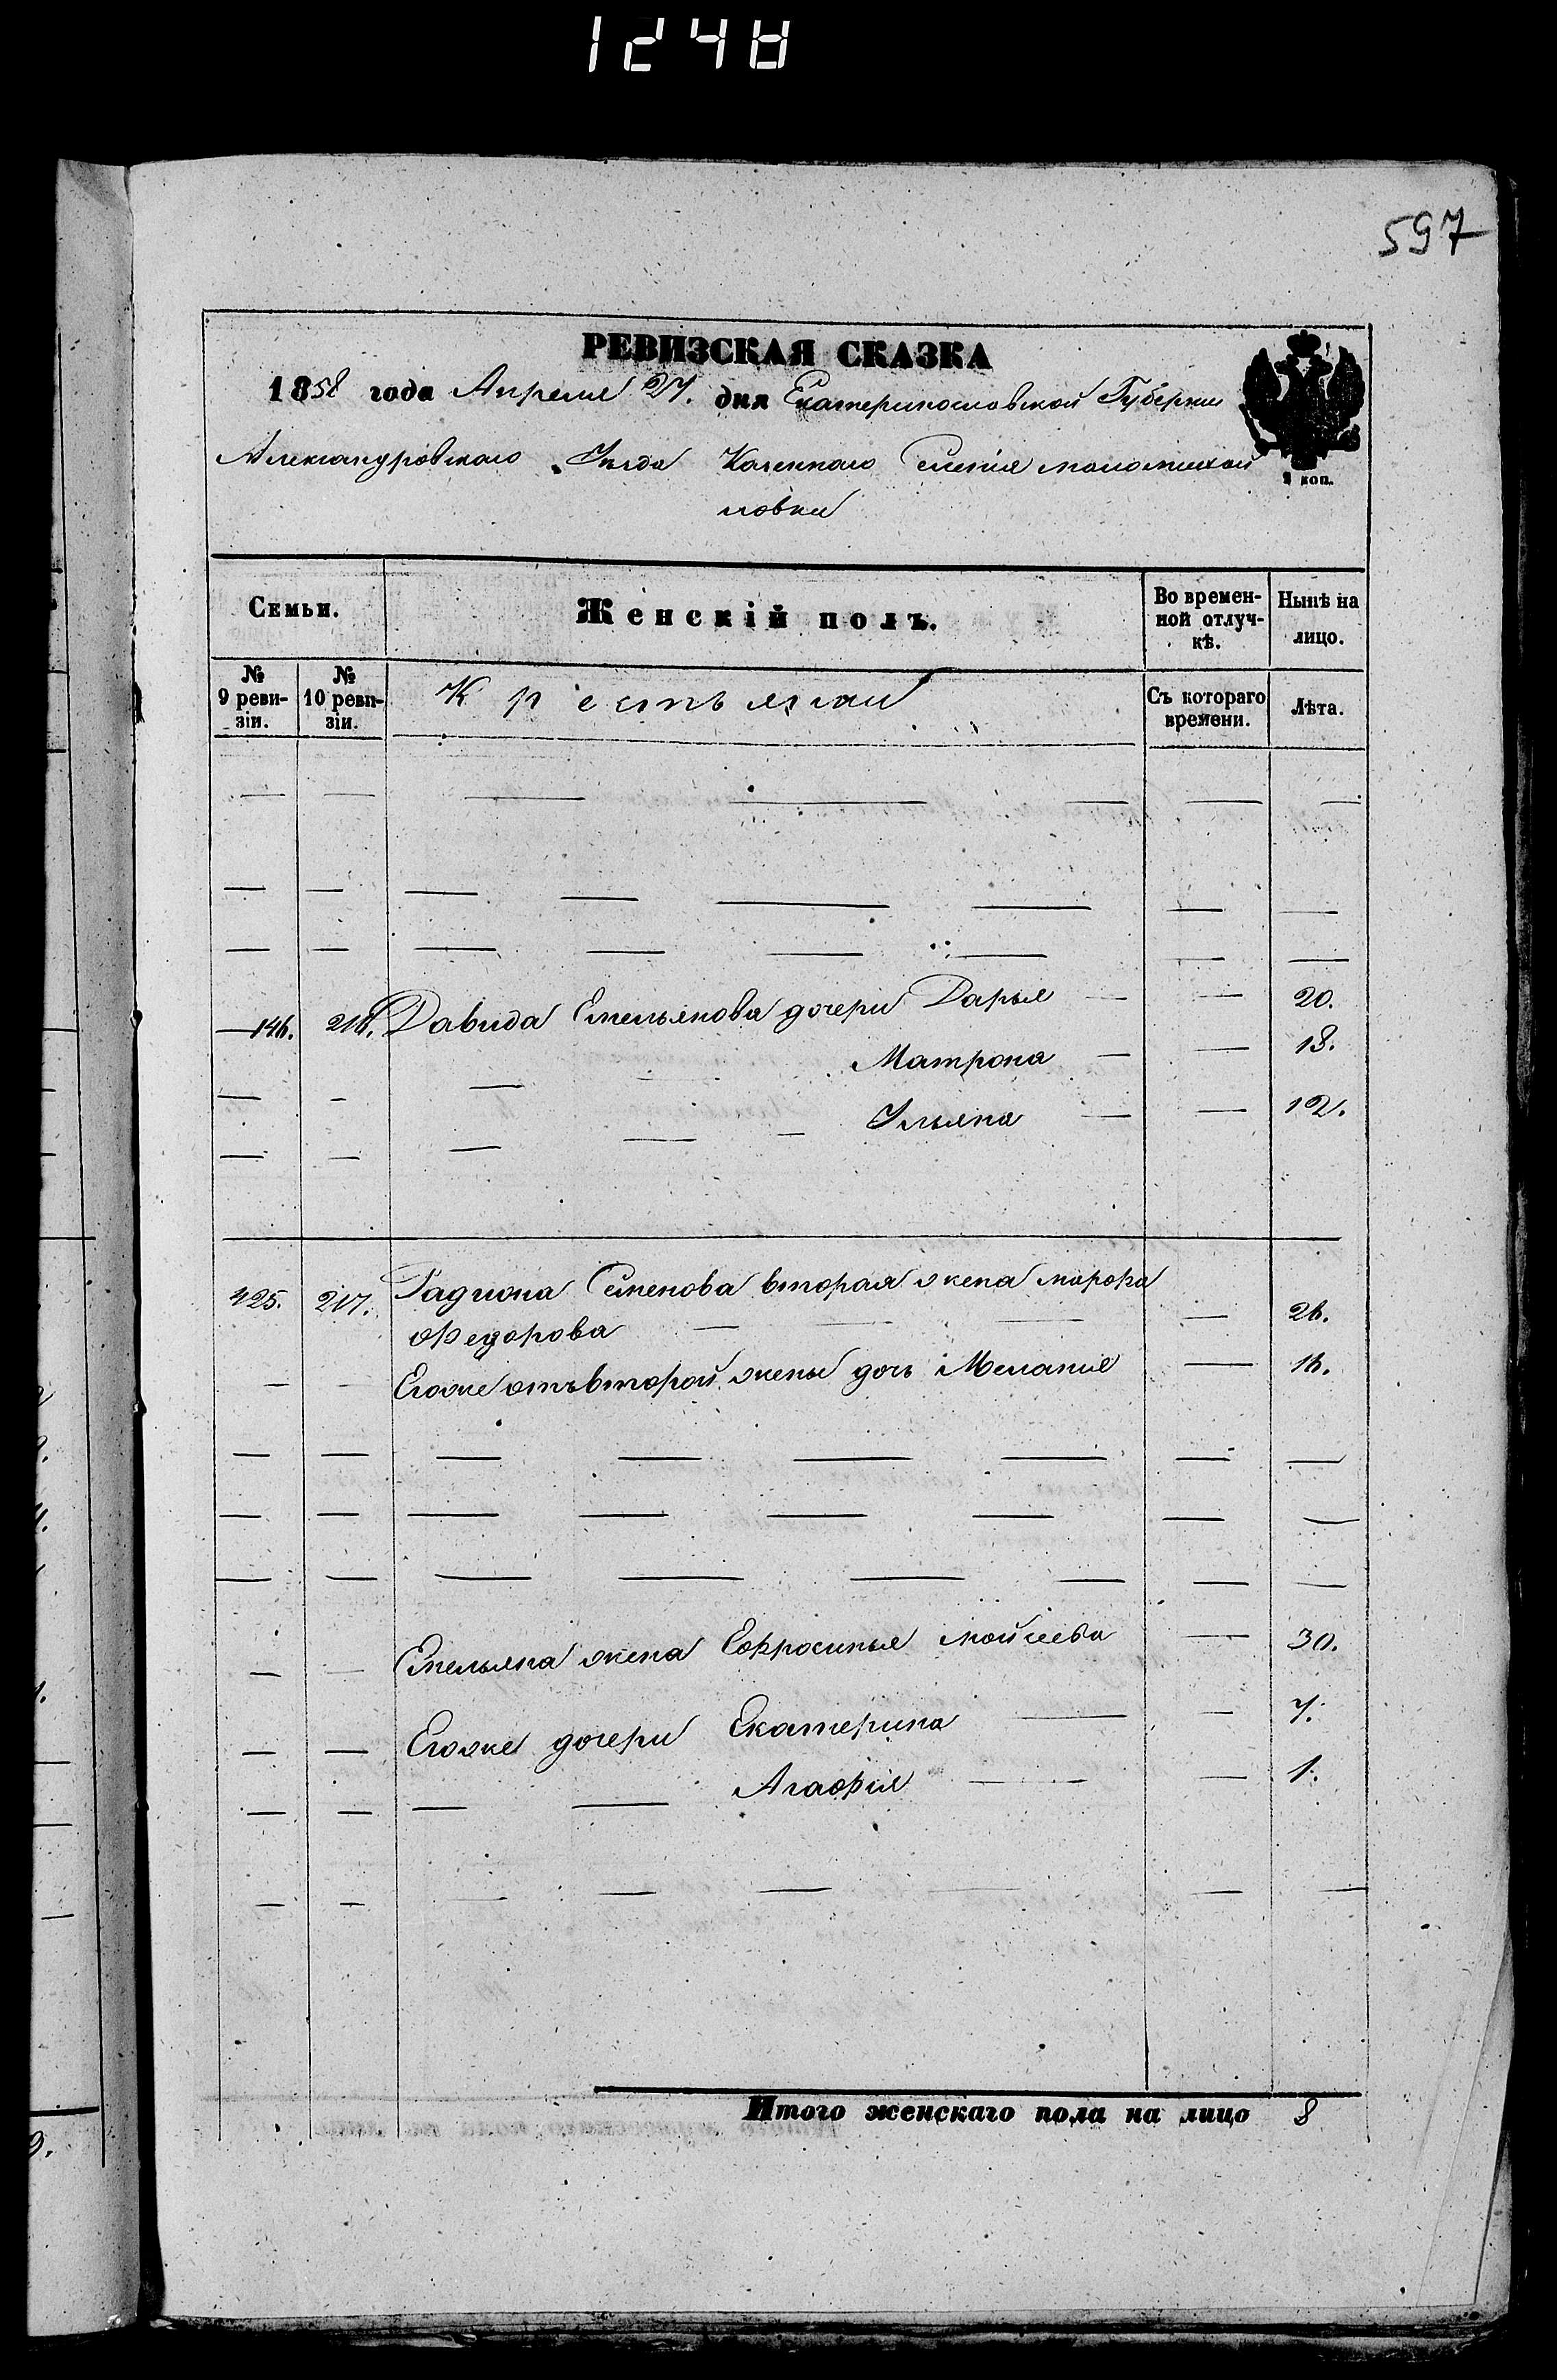 1248
597
РЕВИЗСКАЯ СКАЗКА
1858 года Апреля 27. дня Екатеринославской Губернии
Александровскаго Уезда Казеннаго Селенія маломихай
ловки
2 коп.
Семьи. Женскій полъ. Во времен- Нынѣ на
ной отлуч- лицо.
кѣ.
№ № Крестьяни Съ котораго Лѣта.
9 реви- 10 реви- времени.
зіи. зіи.
— — — — — — —
— — — — — — — —
— — — — — — — —
146. 216. Давида Емельянова дочери Дарья — — 20.
— — — Матрона — — 18.
— — — — — Ульяна — — 12.
425. 217. Радиона Семенова вторая жена марфа
Федорова — — — — 26.
— — Егоже отъвторой жены дочь Мелания — 16.
— — — — — — — —
— — — — — — — —
— — — — — — — —
— — Емельяна жена Ефросинья мойсеева — 30.
— — Егоже дочери Екатерина — — 7.
— — — — Агафія — — — 1.
— — — — — — — —
Итого женскаго пола на лицо 8